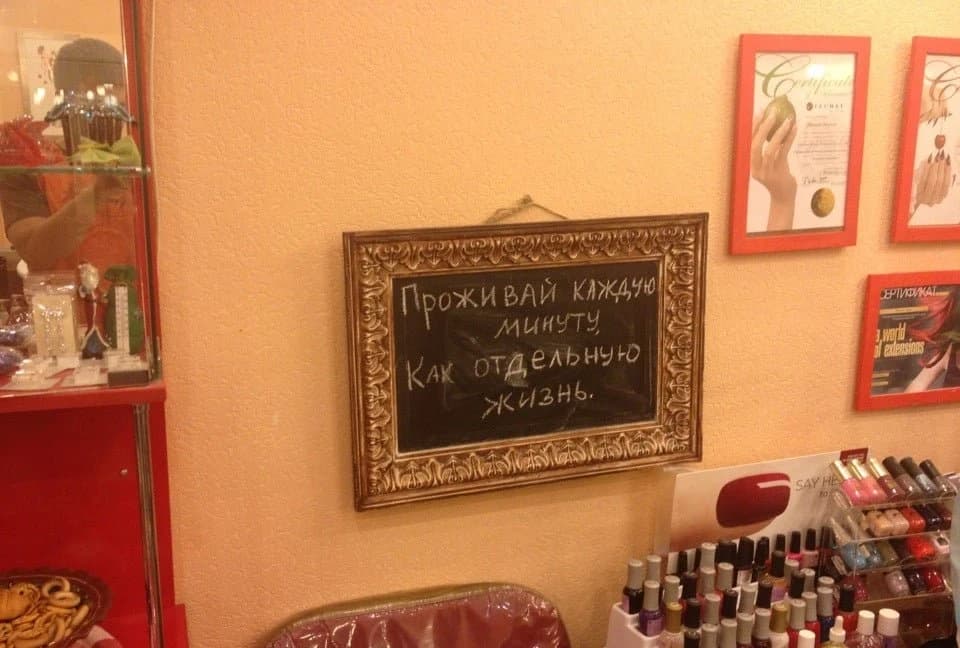 Certificate
Проживай каждую
минуту,
Как отдельную
жизнь.
СЕРТИФИКАТ
world
extensions
SAY